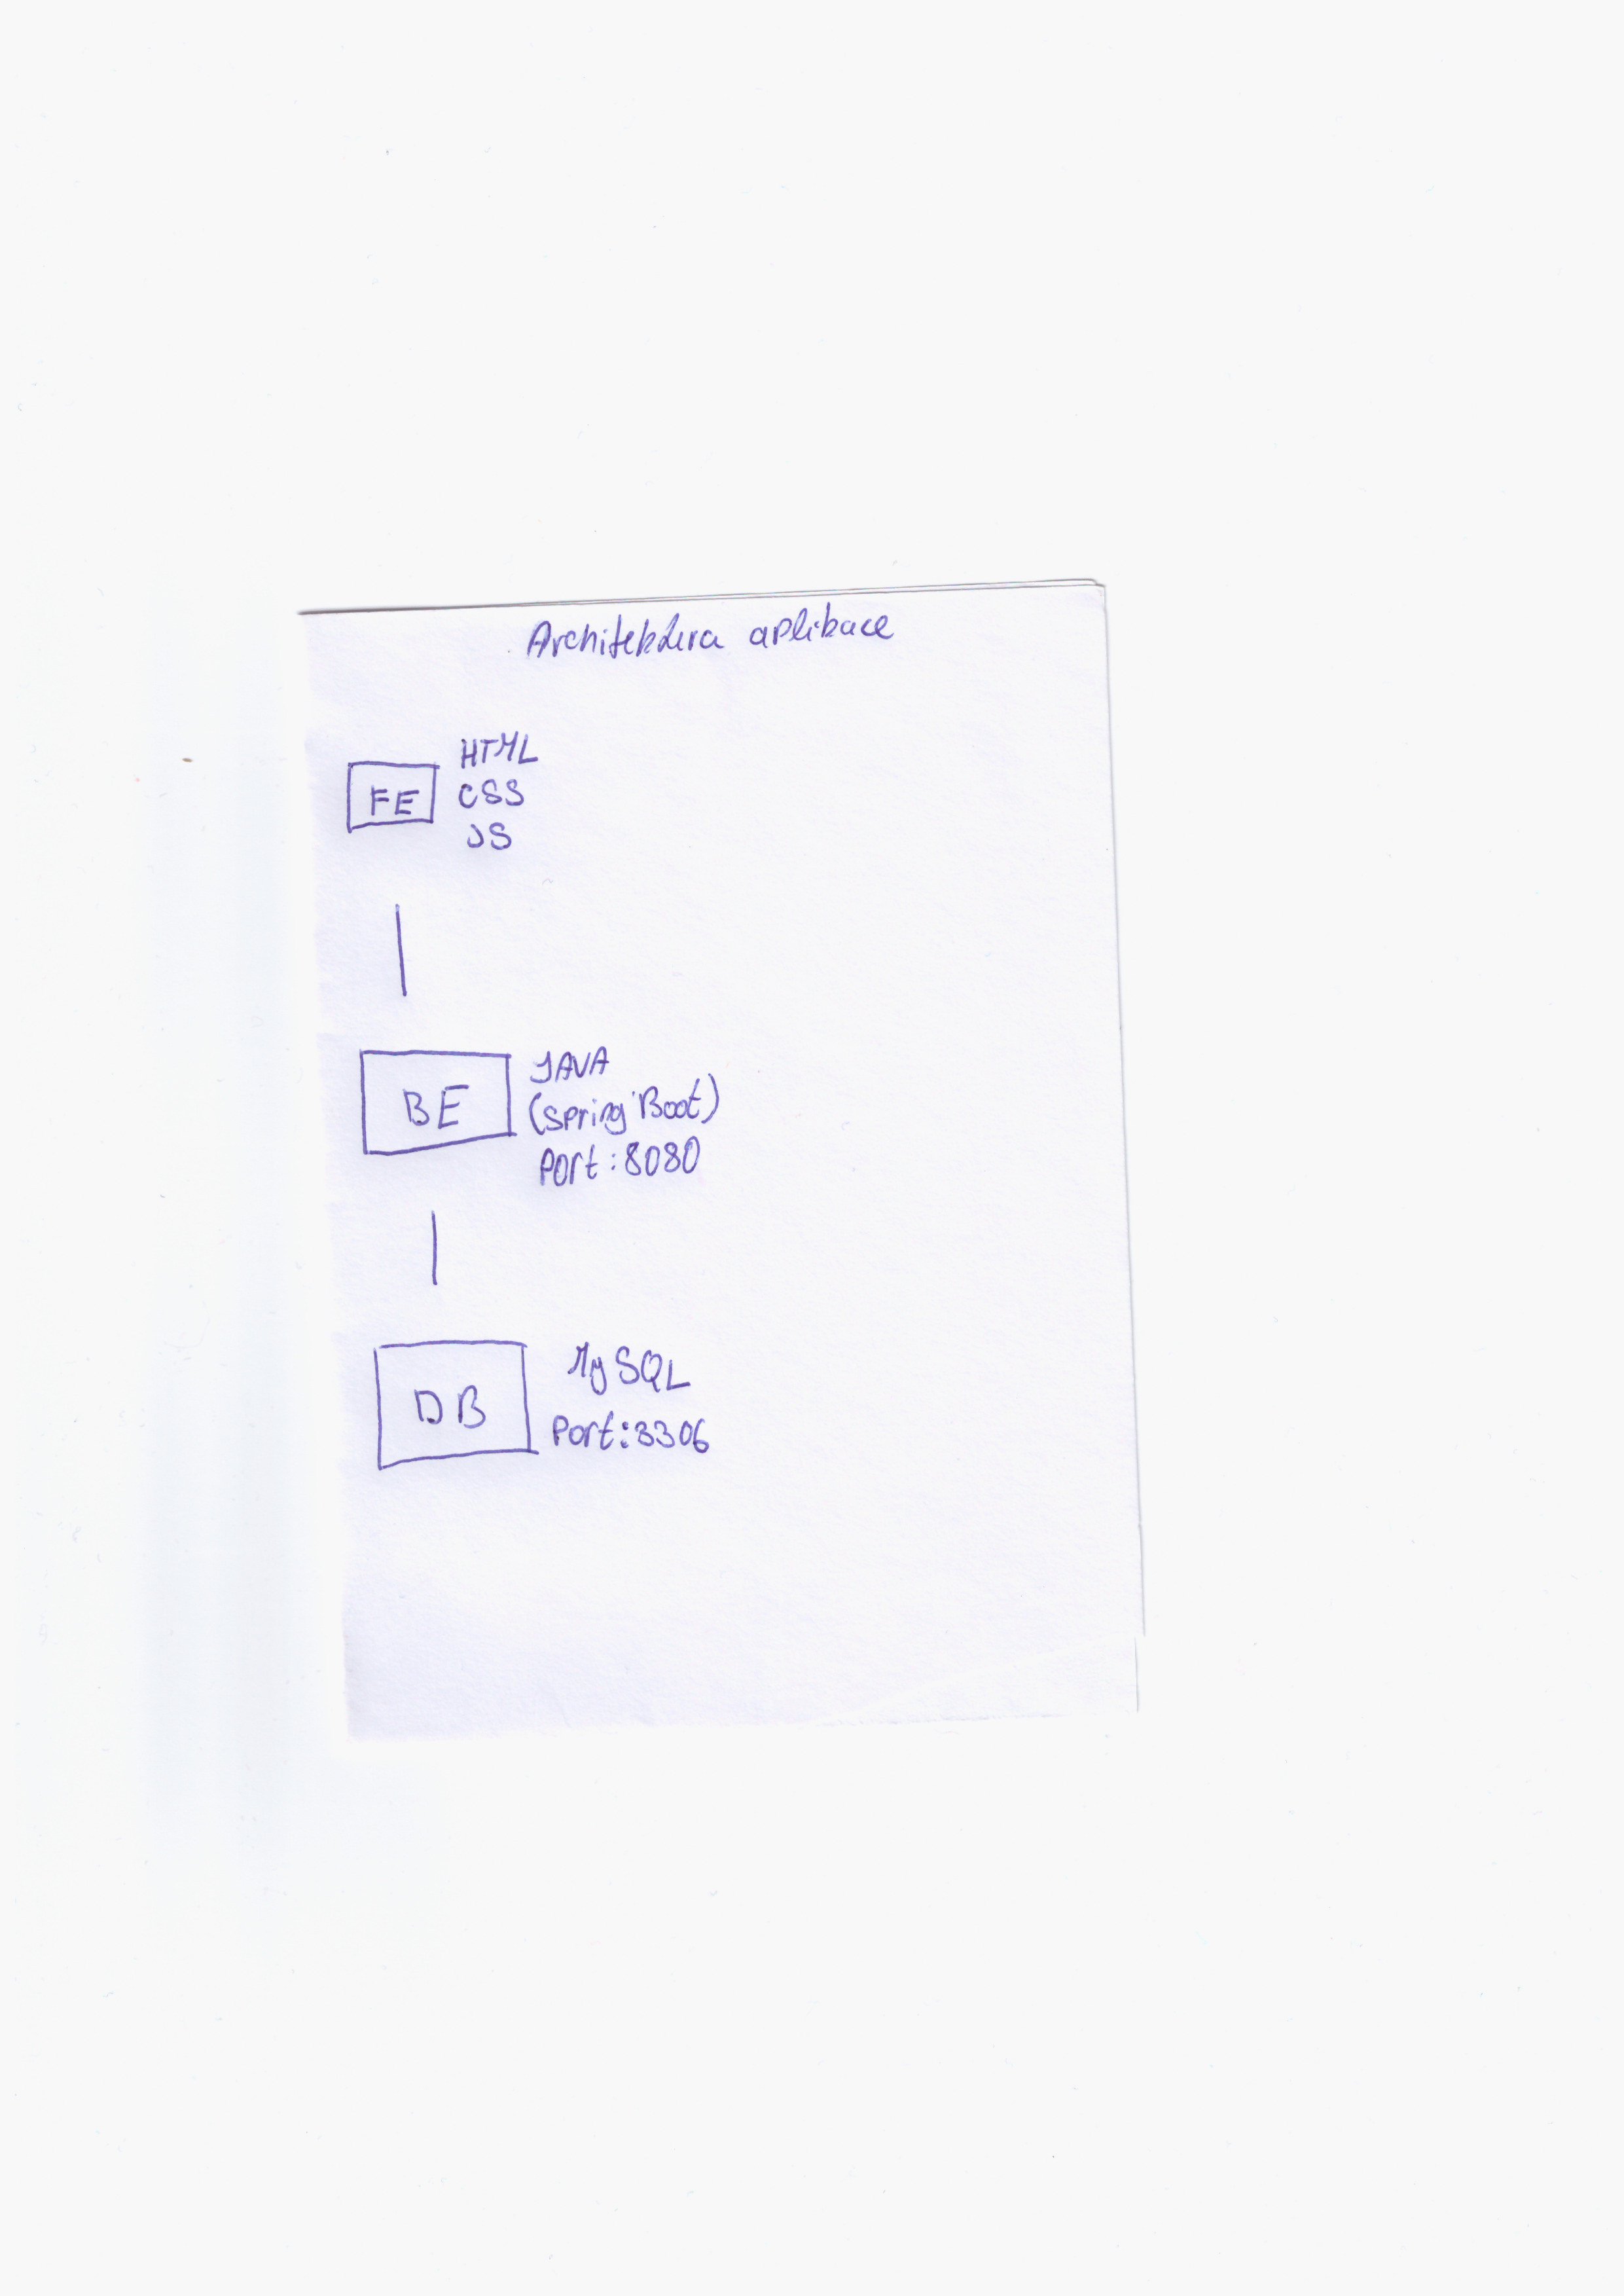 Architektura aplikace
HTML
FE
CSS
JS
JAVA
BE
(Spring Boot)
Port: 8080
MySQL
DB
Port: 3306